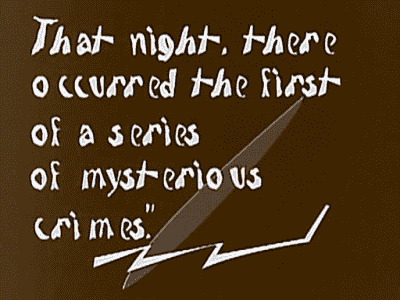 That night, there
occurred the first
of a series
of mysterious
crimes."